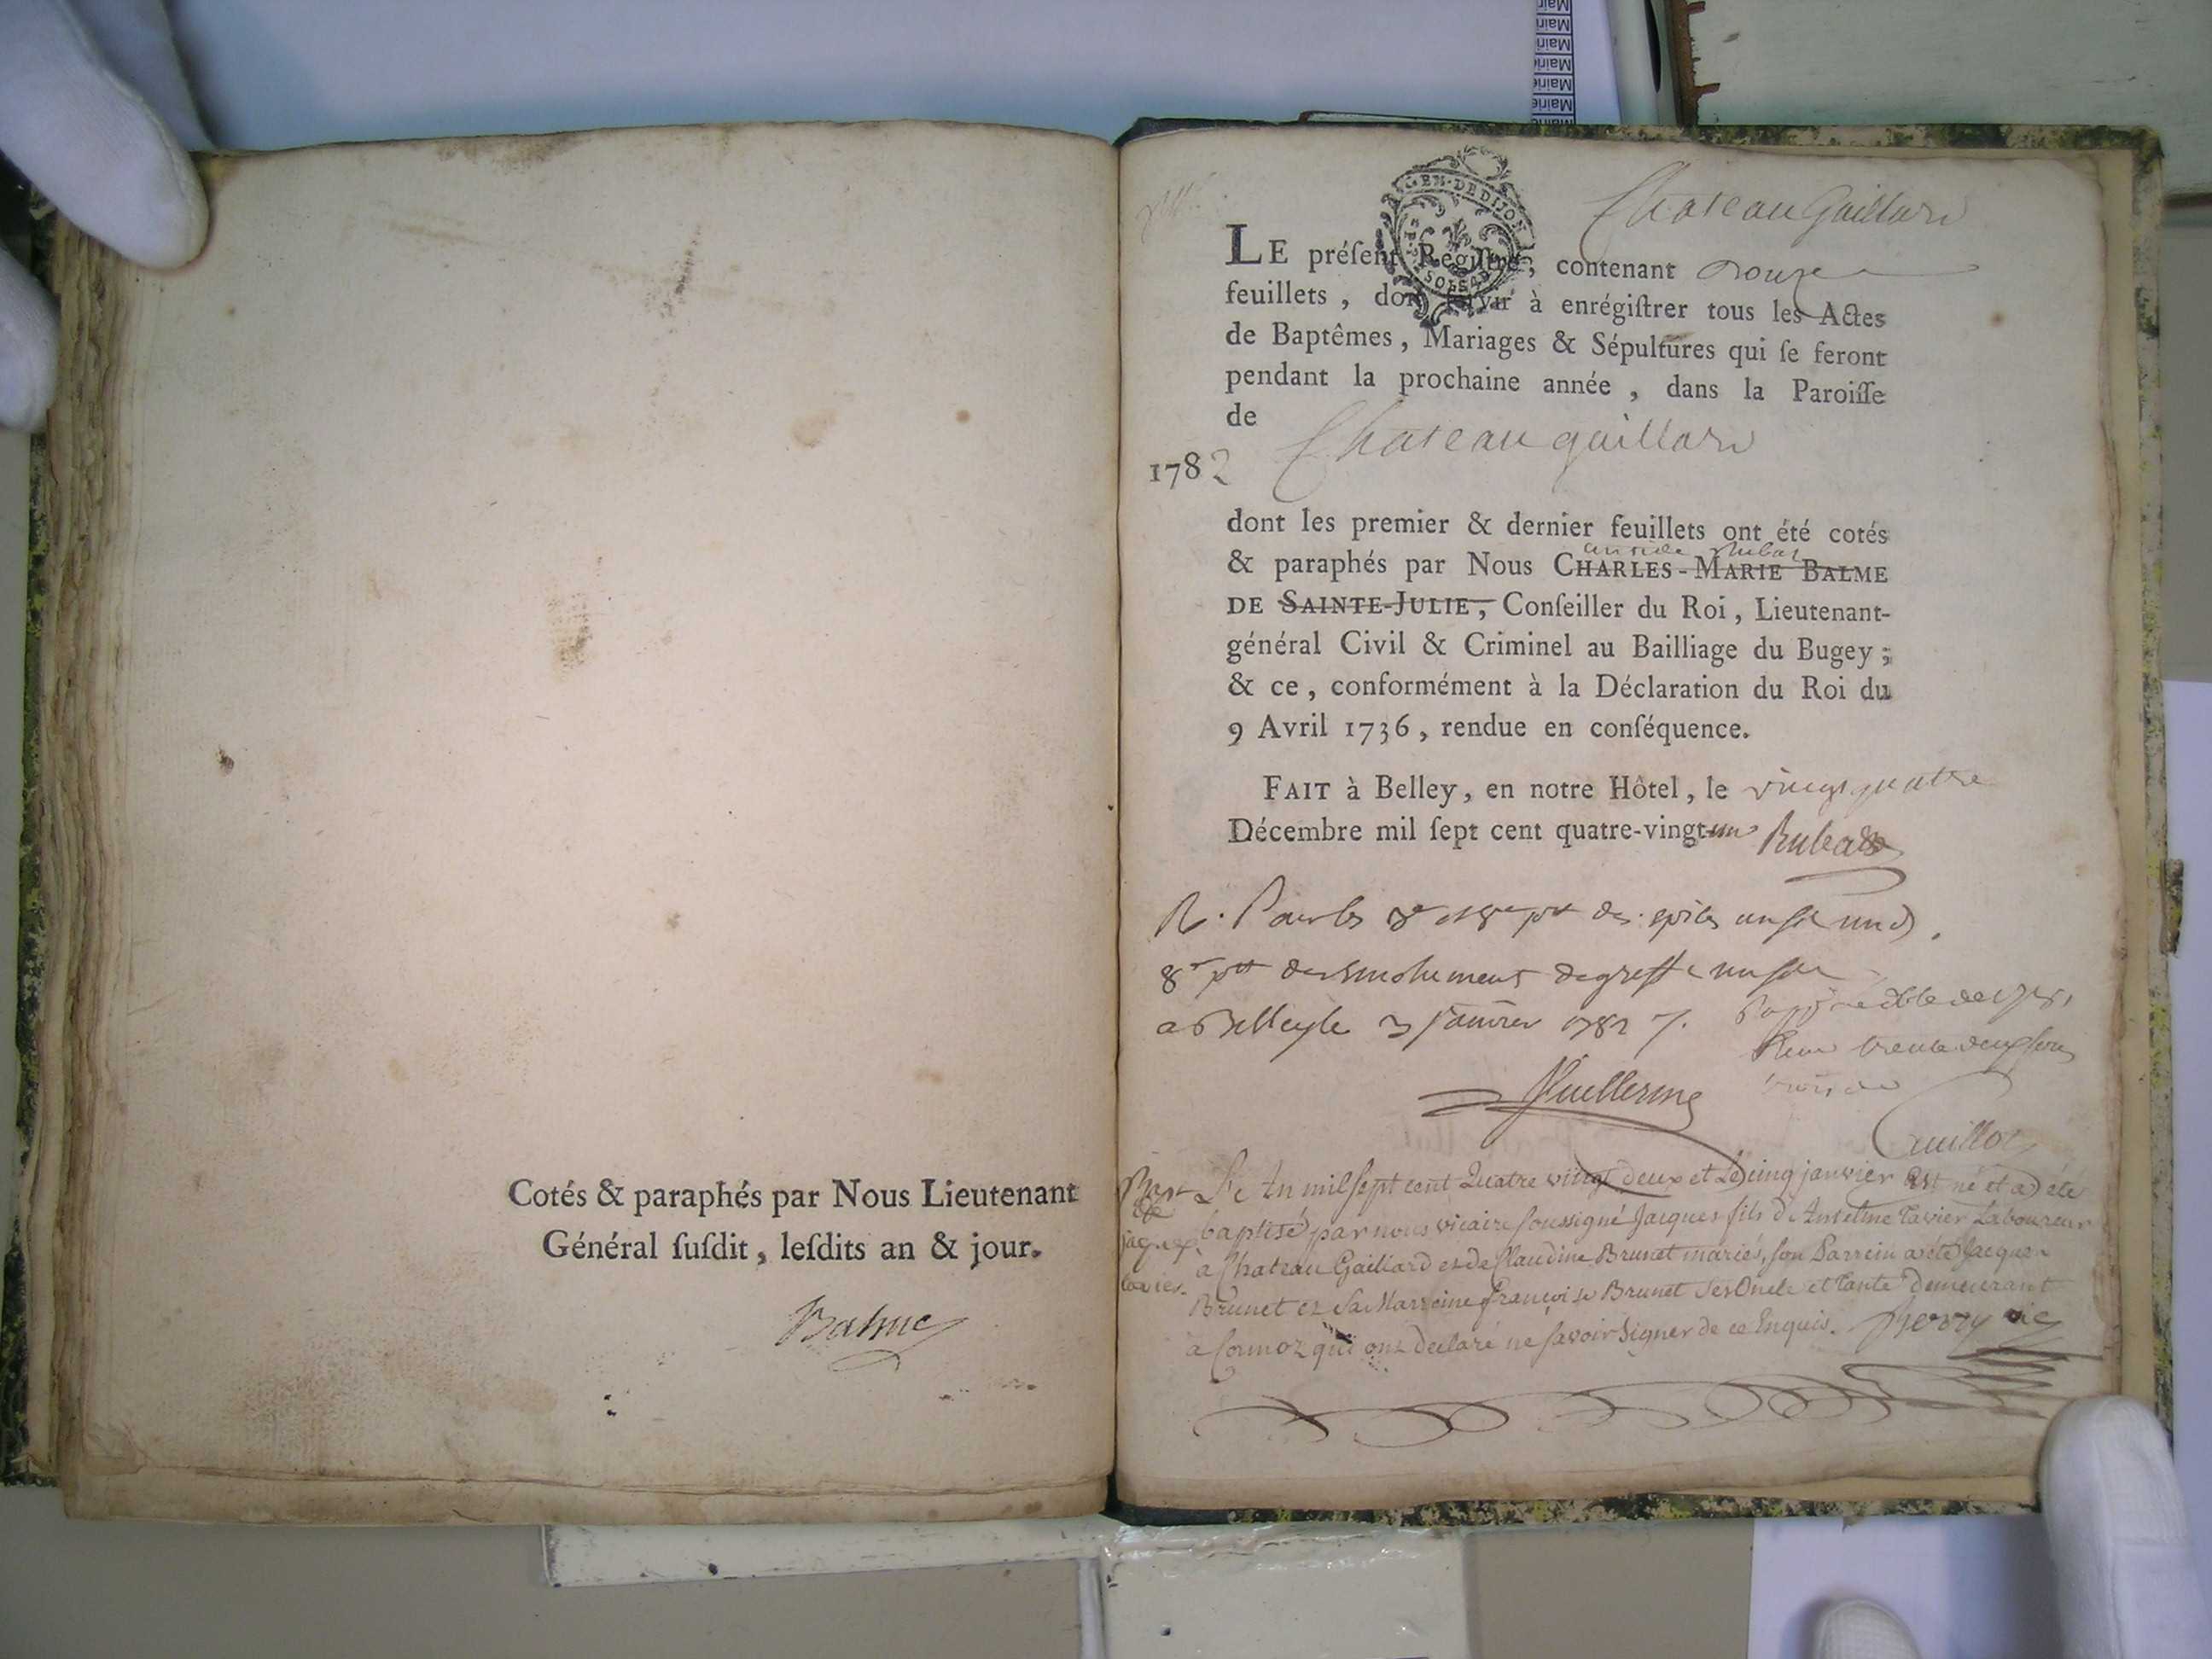 Cotés & paraphés par Nous Lieutenant
Général ſuſdit, leſdits an & jour.
Balme
GEN. DE DIJON
Chateau Gaillard
LE préſent Regiſtre, contenant douze
feuillets, doit ſervir à enrégiſtrer tous les Actes
de Baptêmes, Mariages & Sépultures qui ſe feront
pendant la prochaine année, dans la Paroiſſe
de
Chateau gaillard
1782
dont les premier & dernier feuillets ont été cotés
& paraphés par Nous CHARLES-MARIE BALME
DE SAINTE-JULIE, Conſeiller du Roi, Lieutenant-
général Civil & Criminel au Bailliage du Bugey;
& ce, conformément à la Déclaration du Roi du
9 Avril 1736, rendue en conſéquence.
FAIT à Belley, en notre Hôtel, le vingt quatre
Décembre mil ſept cent quatre-vingt-un
R. Pour les
8e des emolument de greffe
a Belley le 3 janvier 1782
trente deux sous
Guillot
Bapt Le An mil sept cent Quatre vingt deux et Le cinq janvier Est né et a été
de baptisé par nous vicaire soussigné Jacques fils d'Antelme Tavier Laboureur
jaques à Chateau Gaillard et de Claudine Brunet mariés, son Parrein a été Jacques
tavier. Brunet et Sa Marreine Françoise Brunet ses Oncle et Tante Demeurant
à Cormoz qui ont declaré ne savoir signer de ce Enquis.
Mairie
Mairie
Mairie
Mairie
Mairie
Mairie